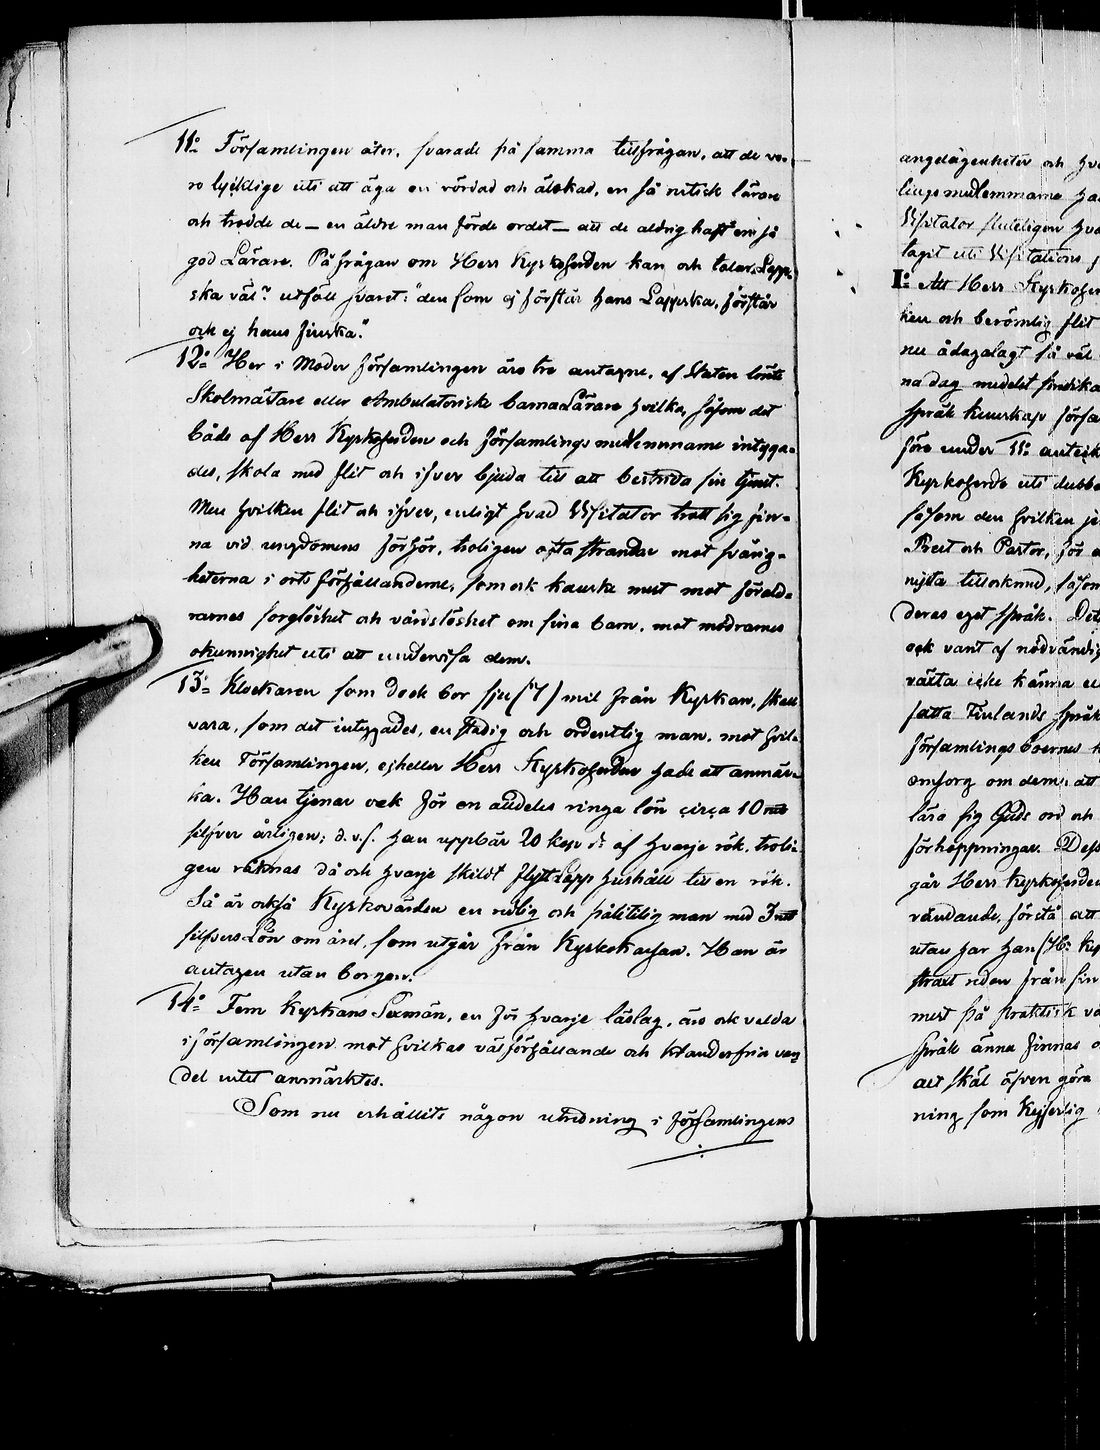 11:o Församlingen åter, svarade på samma tillfrågan, att de vo-
ro lycklige uti att äga en vördad och älskad, en så nitisk lärare
och trodde de — en äldre man förde ordet — att de aldrig haft en så
god Lärare. På frågan om Herr Kyrkoherden kan och talar Lapp-
ska väl? utföll svaret: "den som ej förstår hans Lappska, förstår
ock ej hans finska."
12:o Her i Moder församlingen äro tre antagne, af Staten lönte
Skolmästare eller Ambulatoriske barnaLärare hvilka, såsom det
både af Herr Kyrkoherden och församlings medlemmarne intyga-
des, skola med flit och ifver bjuda till att bestrida sin tjenst.
Men hvilken flit och ifver, enligt hvad Visitator trott sig fin-
na vid ungdomens förhör, troligen ofta strandar mot svårig-
heterna i orts förhållanderne, som ock kanske mest mot föräld-
rarnes sorglöshet och vårdslöshet om sina barn, mot mödrarnes
okunnighet uti att undervisa dem.
13:o Klockaren som dock bor sju (7) mil från Kyrkan, skall
vara, som det intygades, en stadig och ordentlig man, mot hvil-
ken Församlingen, ej heller Herr Kyrkoherden hade att anmär-
ka. Han tjenar ock för en alldeles ringa lön circa 10
silfver årligen; d.v.s. han uppbär 20 kop af hvarje rök, troli-
gen räknas då och hvarje skildt flyttLapp hushåll till en rök.
Så är också Kyrkovärden en redlig och pålitelig man med 3
silfvers Lön om året, som utgår från Kyrkokassan. Han är
antagen utan borgen.
14:o Fem Kyrkans Sexmän, en för hvarje läslag, äro ock valda
i församlingen mot hvilkas välförhållande och klanderfria van-
del intet anmärktes.
Som nu erhållits någon utredning i församlingens
angelägenheter och
lings medlemmarne
Visitator slutligen
tagit uti Visitations
I:o Att Herr Kyrkoher
ken och berömlig flit
nu ådagalagt så väl
na dag medelst predika
språk kunskap försa
före under 11:o anteck
Kyrkoherde uti dubbe
såsom den hvilken
Prest och Pastor, för
såsom
deras eget språk.
ock vant af nödvändig
växta icke känna
fatta Finlands språk
församlings boernes
omsorg om dem, att
lära sig Guds ord och
förhoppningar.
går Herr kyrkoherden
vändande, förstå att
utan har han
straxt redan från sin
mest på praktisk
språk ännu finnas
alt skäl äfven göra
ning som Kejserlig